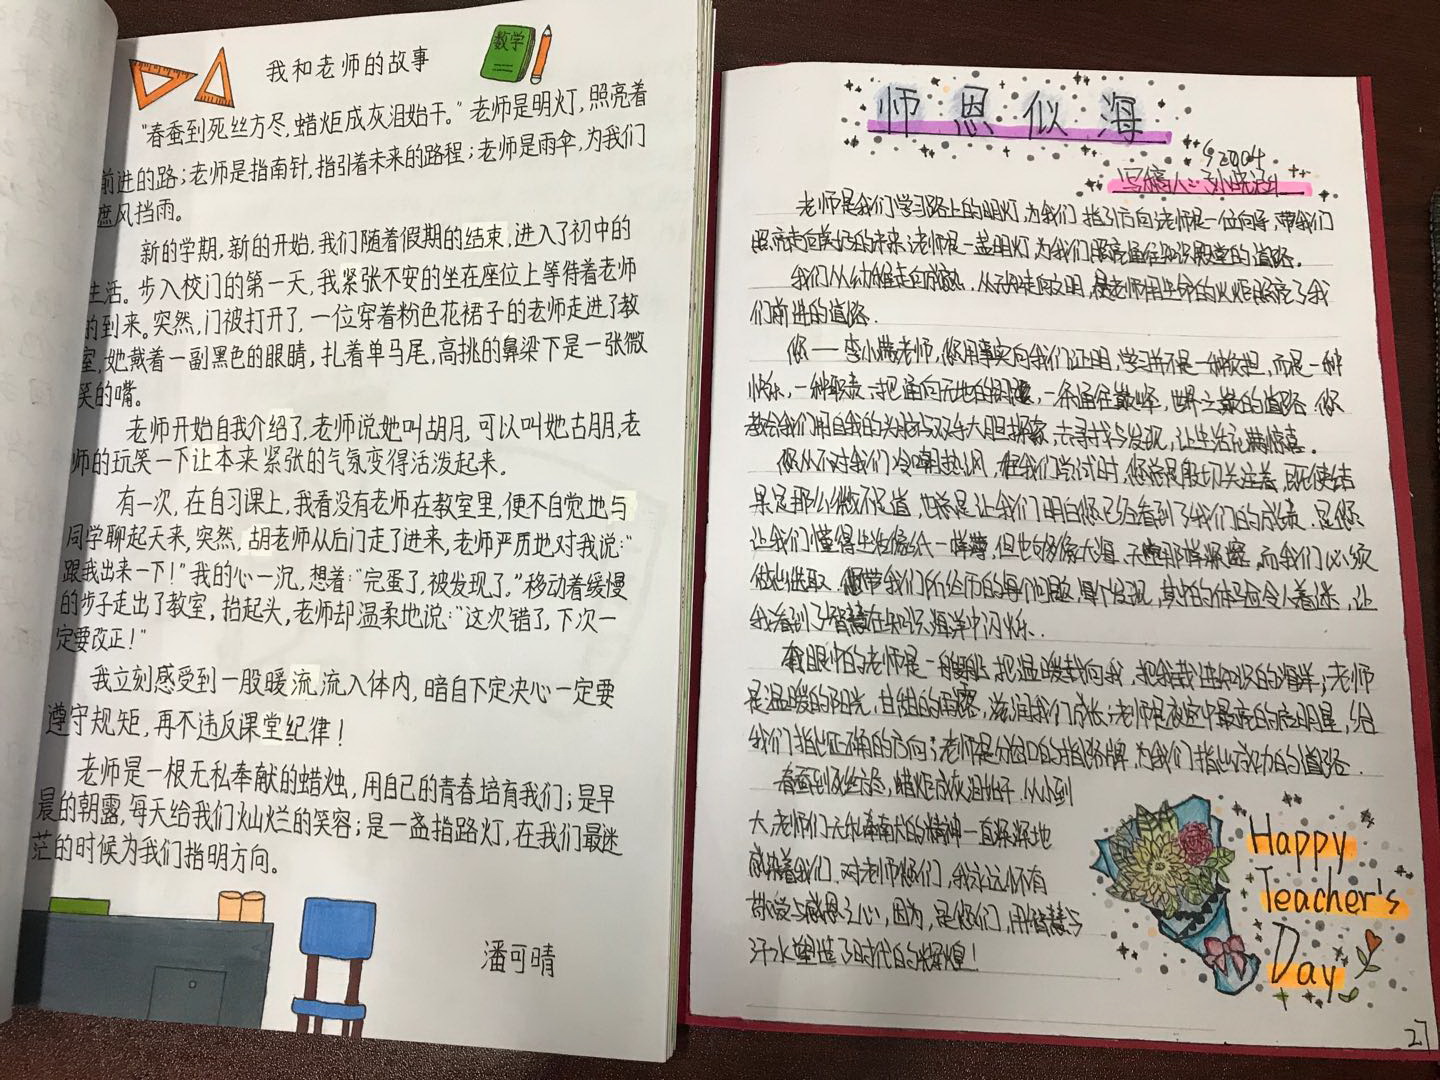 我和老师的故事
数学
"春蚕到死丝方尽,蜡炬成灰泪始干。"老师是明灯,照亮着
前进的路;老师是指南针,指引着未来的路程;老师是雨伞,为我们
遮风挡雨。
新的学期,新的开始,我们随着假期的结束,进入了初中的
生活。步入校门的第一天,我紧张不安的坐在座位上等待着老师
的到来。突然,门被打开了,一位穿着粉色花裙子的老师走进了教
室,她戴着一副黑色的眼睛,扎着单马尾,高挑的鼻梁下是一张微
笑的嘴。
老师开始自我介绍了,老师说她叫胡月,可以叫她古朋月,老
师的玩笑一下让本来紧张的气氛变得活泼起来。
有一次,在自习课上,我看没有老师在教室里,便不自觉地与
同学聊起天来,突然,胡老师从后门走了进来,老师严厉地对我说:"
跟我出来一下!"我的心一沉,想着:"完蛋了,被发现了。"移动着缓慢
的步子走出了教室,抬起头,老师却温柔地说:"这次错了,下次一
定要改正!"
我立刻感受到一股暖流流入体内,暗自下定决心一定要
遵守规矩,再不违反课堂纪律!
老师是一根无私奉献的蜡烛,用自己的青春培育我们;是早
晨的朝露,每天给我们灿烂的笑容;是一盏指路灯,在我们最迷
茫的时候为我们指明方向。
潘可晴
师恩似海
S2004
写稿人:孙晓
老师是我们学习路上的明灯,为我们指引方向;老师是一位向导,带我们
照亮走向美好的未来;老师是一盏明灯,为我们照亮通往知识殿堂的道路.
我们从幼稚走向成熟,从无知走向文明,是老师用生命的火炬照亮了我
们前进的道路.
您——李小燕老师,您用事实向我们证明,学习并不是一种负担,而是一种
快乐,一种职责,一把通向天地的钥匙,一条通往巅峰,世界之巅的道路.您
教会我们用自我的头脑与双手大胆探索,去寻找与发现,让生活充满惊喜.
您从不对我们冷嘲热讽,在我们尝试时,您总是殷切关注着,既使结
果是那么微不足道,也总是让我们明白您已经看到了我们的成绩.是您
让我们懂得生活像纸一样薄,但也够像大海一样深邃,而我们必须
做出选取.您带我们所经历的每个问题,每个发现,其中的体验令人着迷,让
我看到了智慧在知识海洋中闪烁.
我眼中的老师是一艘船,把温暖载向我,把我载进知识的海洋;老师
是温暖的阳光,甘甜的雨露,滋润我们成长;老师是夜空中最亮的启明星,给
我们指出正确的方向;老师是分岔口的指路牌,为我们指出成功的道路.
春蚕到死丝方尽,蜡炬成灰泪始干.从小到
大,老师们无私奉献的精神一直深深地
感染着我们.对老师您们,我永远怀有
敬爱与感恩之心,因为,是您们,用智慧与
汗水塑造了时代的辉煌!
Happy
Teacher's
Day
27